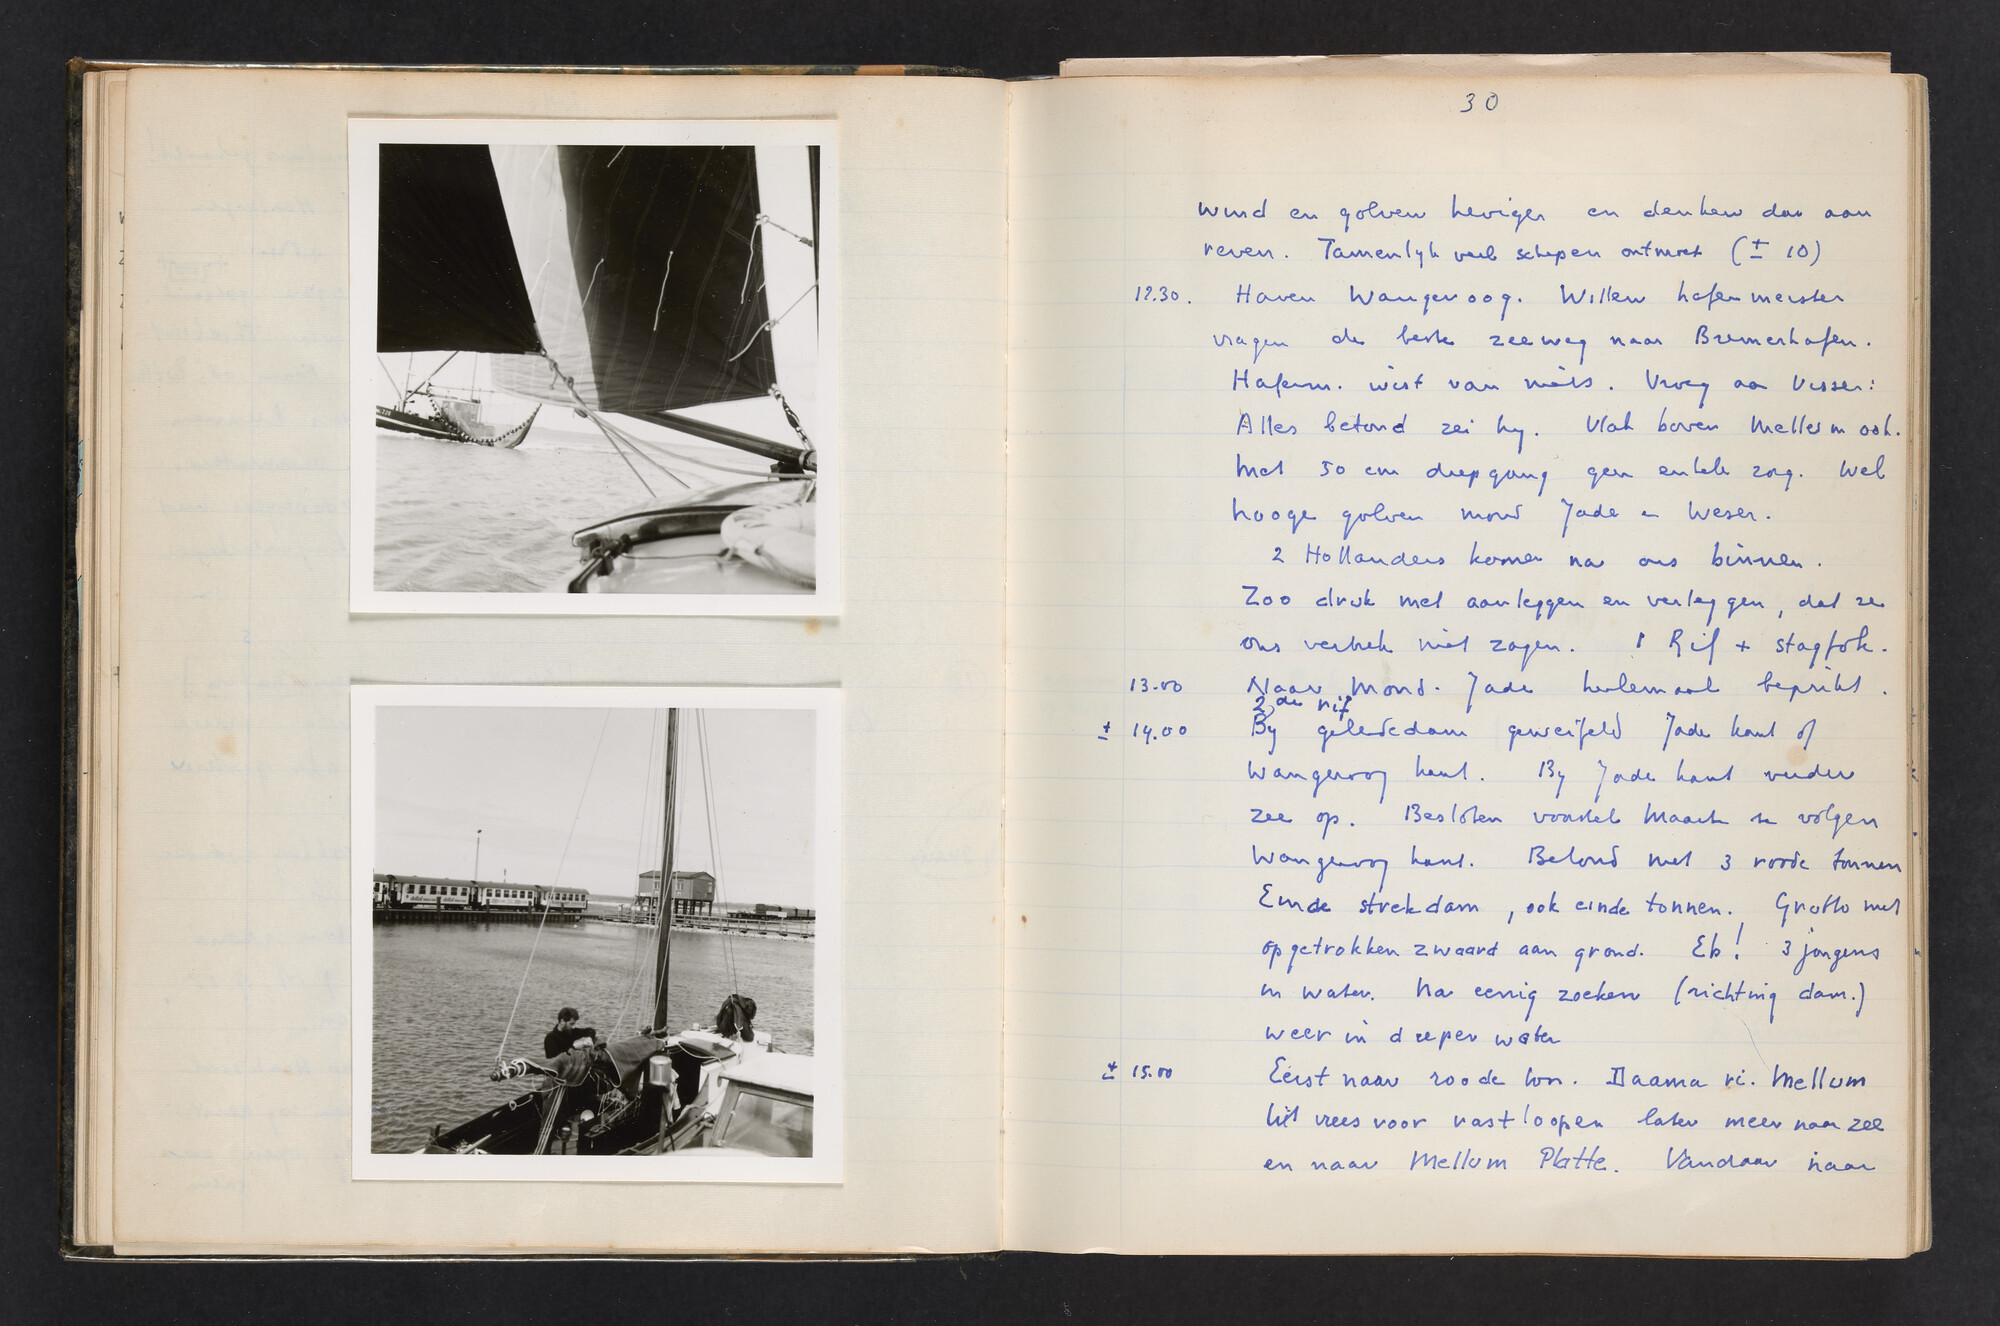 30
wind en golven heviger en denken dan aan
reven. Tamenlyk veel schepen ontmoet (± 10)
12.30. Haven Wangeroog. Willen hafenmeister
vragen de beste zeeweg naar Bremerhafen.
Hafenm. wist van niets. Vroeg aan Visser:
Alles betond zei hy. Vlak boven Mellum ook.
Met 50 cm diepgang geen enkele zorg. Wel
hooge golven mond Jade en Weser.
2 Hollanders komen na ons binnen.
Zoo druk met aanleggen en verleggen, dat ze
ons vertrek niet zagen. 1 Rif + stagfok.
13.00 Naar mond. Jade helemaal beprikt.
2de rif
± 14.00 By geleidedam geweifeld Jade kant of
Wangeroog kant. By Jade kant verder
zee op. Besloten voorste Maark te volgen
Wangeroog kant. Betond met 3 roode tonnen
Einde strekdam, ook einde tonnen. Grutto met
opgetrokken zwaard aan grond. Eb! 3 jongens
in water. Na eenig zoeken (richting dam.)
weer in dieper water
± 15.00 Eerst naar roode ton. Daarna ri. Mellum
Uit vrees voor vastloopen later meer naar zee
en naar Mellum Platte. Vandaar naar